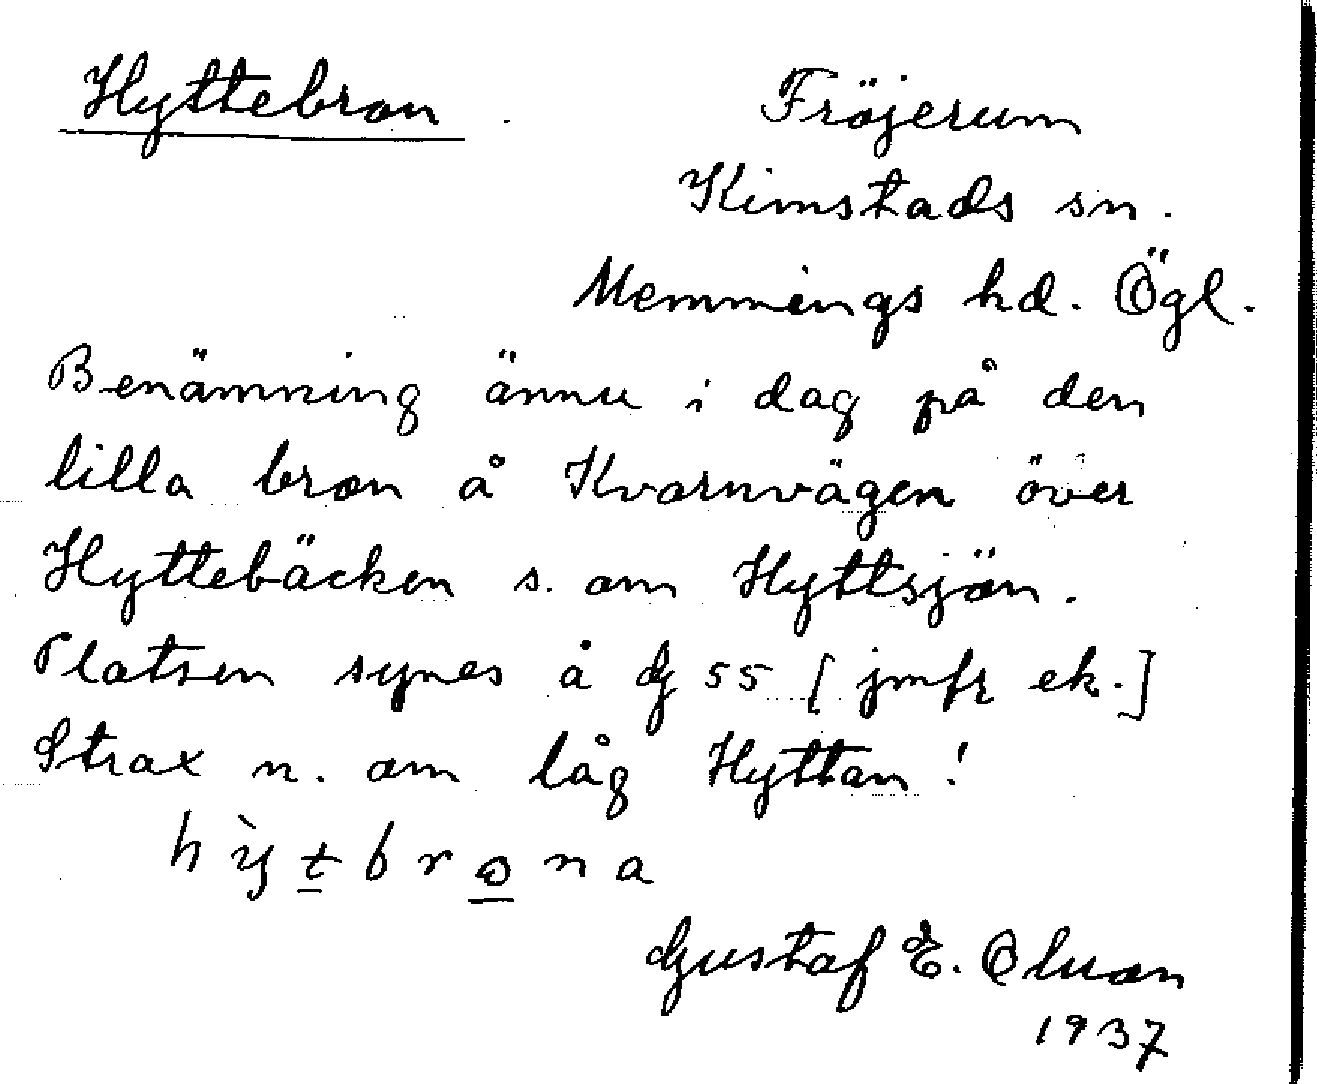 Hyttebron.
Fröjerum
Kimstads sn.
Memmings hd. Ögl.
Benämning ännu i dag på den
lilla bron å Kvarnvägen över
Hyttebäcken s. om Hyttsjön.
Platsen synes å G 55 [jmfr ek.]
Strax n. om låg Hyttan!
hy̆̀t̲bro̲na
Gustaf E.
1937